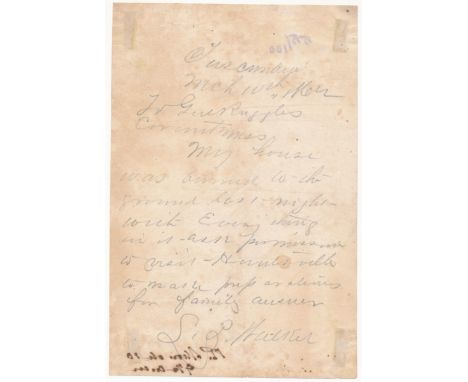 Tuscumbia
Mch 10th 1862
To Gen Ruggles
Corinth Miss
My house
was burned to the
ground last night
with Every thing
in it - ask permission
to visit Huntsville
to make preparations
for family answer
L. P. Walker